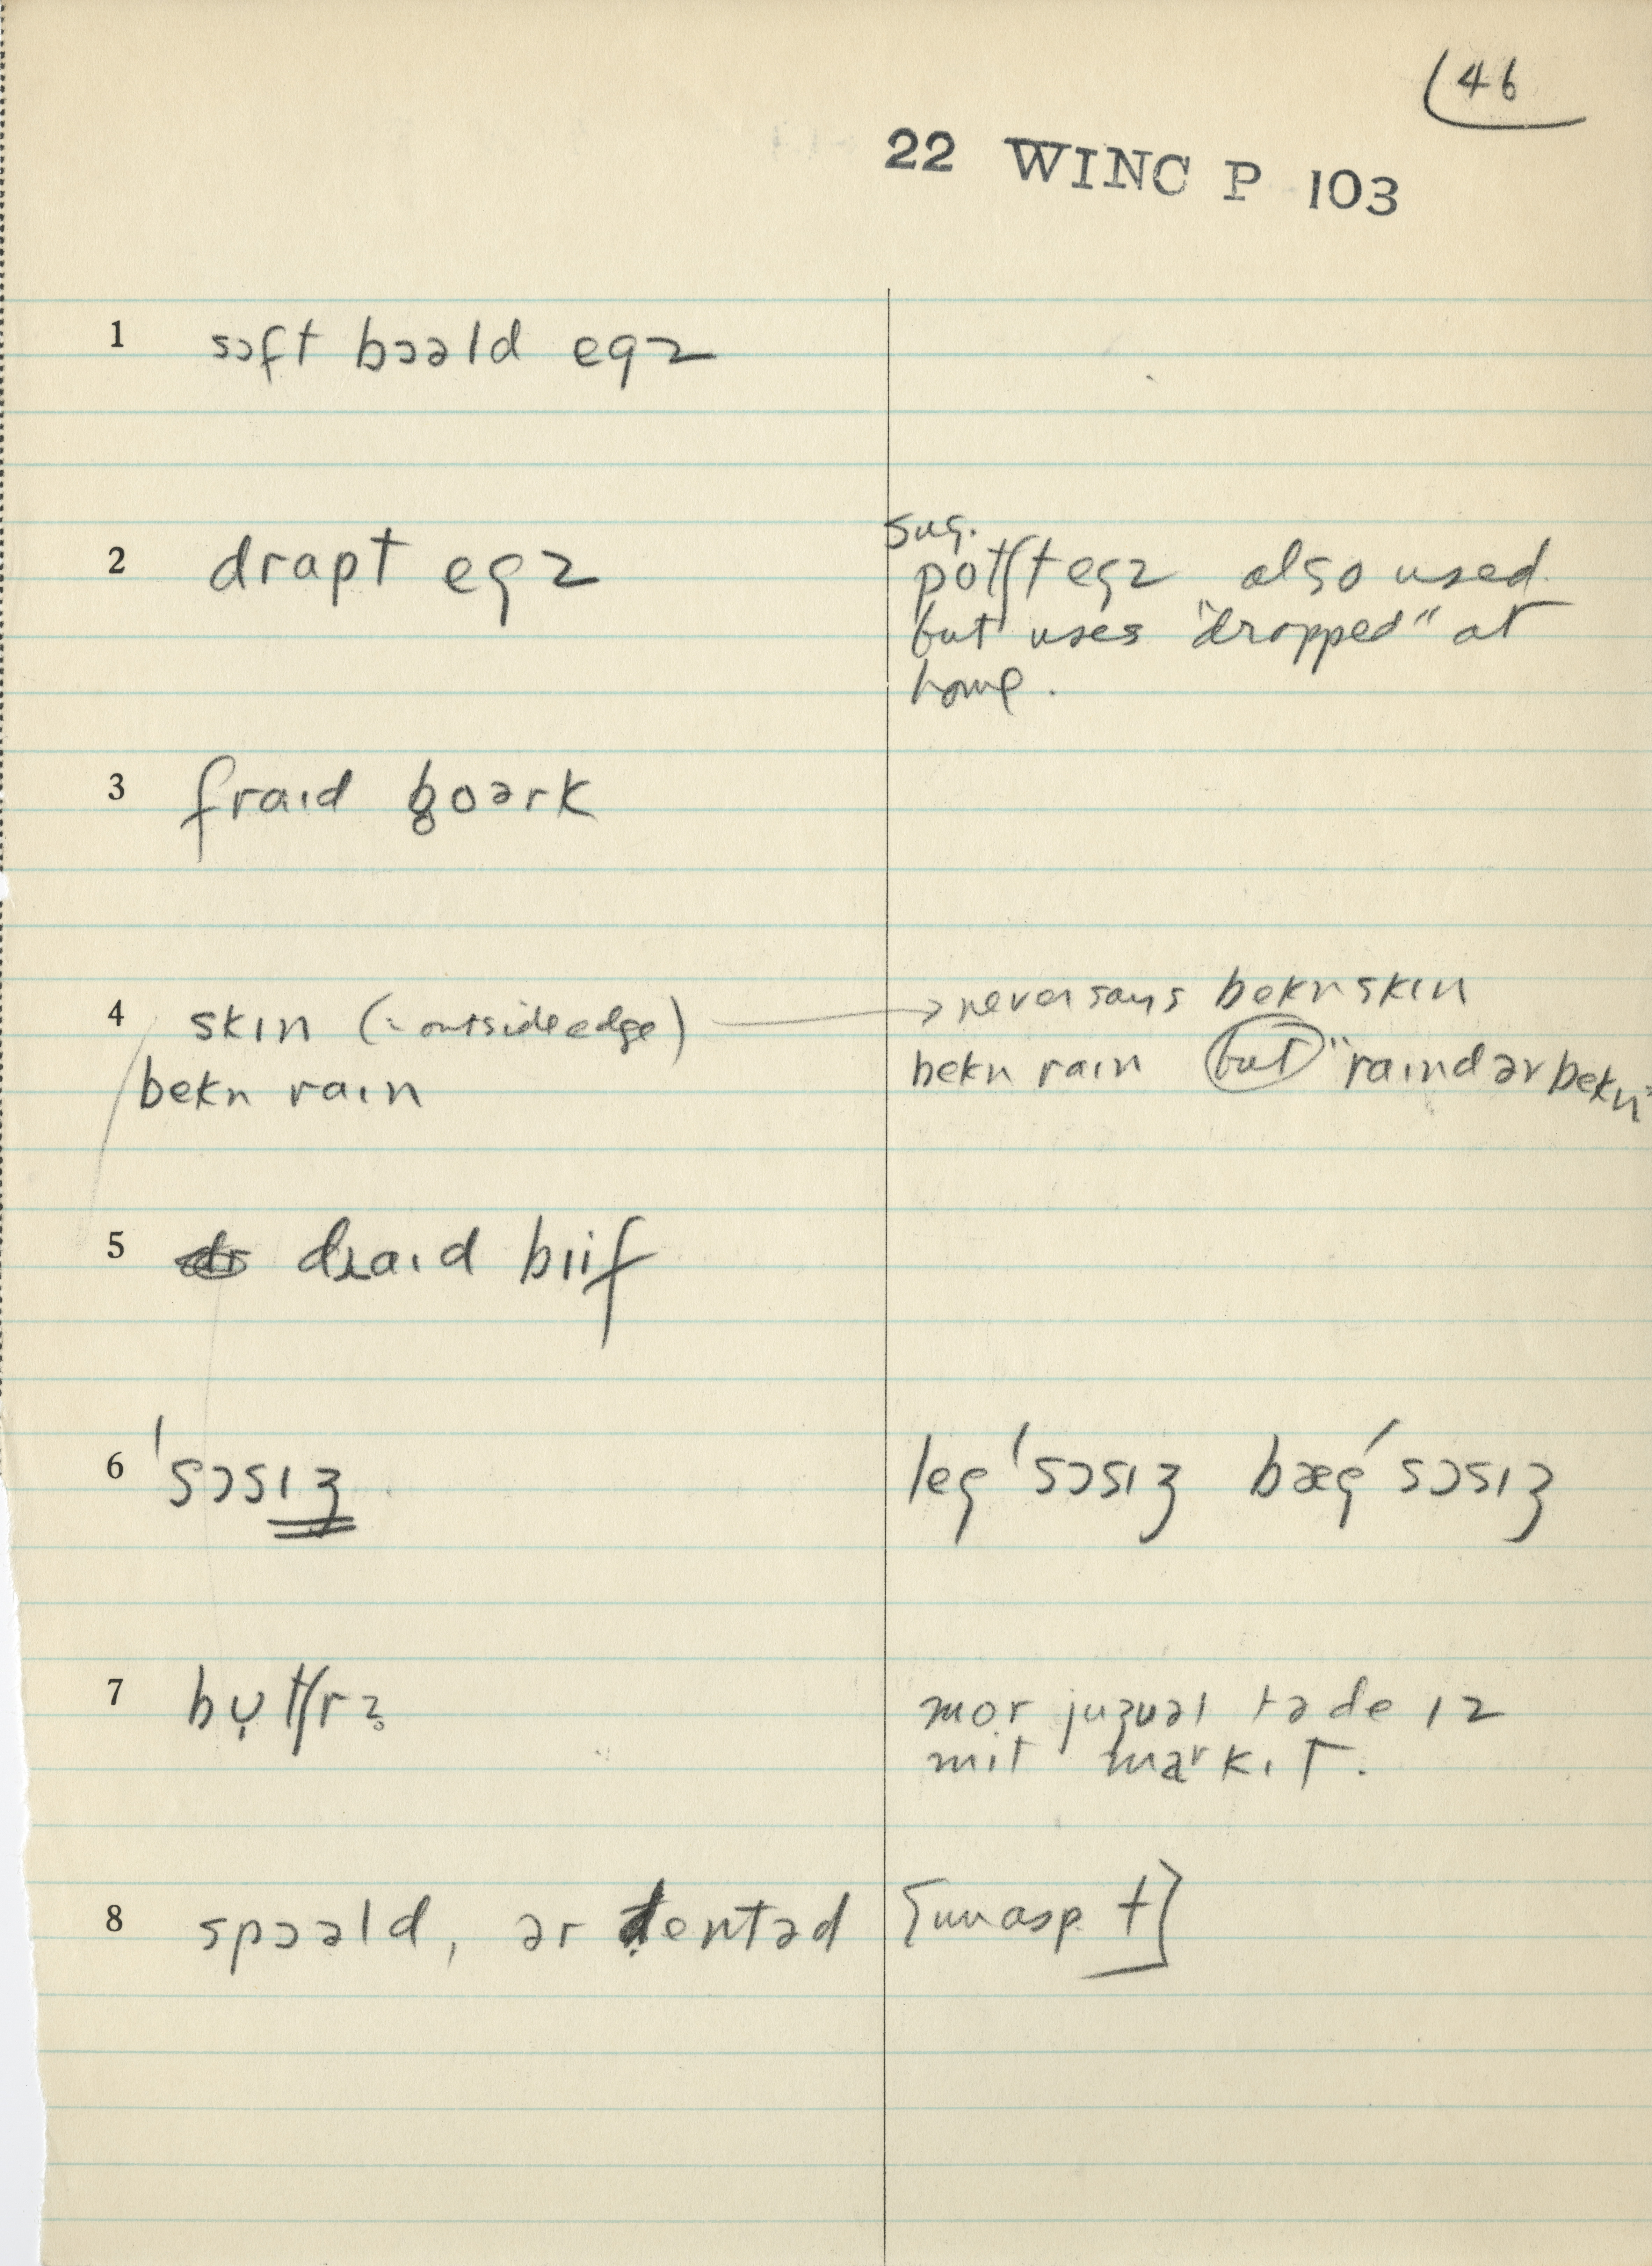 46
22 WINC P 103
1 sɔft bɔəld egz
2 drapt egz
sug.
potʃt egz also used
but uses "dropped" at
home.
3 fraɪd poərk
4 skɪn (= outside edge) → never says bekn skɪn
bekn raɪn
bekn raɪn but "raɪnd ər bekn"
5 draɪd bɪif
6 ˈsɔsɪʒ
leg ˈsɔsɪʒ bæg ˈsɔsɪʒ
7 bụtʃrz̥
mor juʒuəl təde ɪz
mit markɪt.
8 spɔəld, ər tentəd [unasp t]